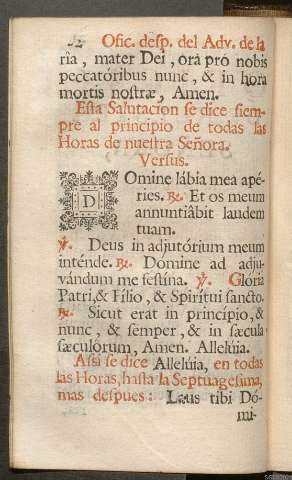 52 Ofic. desp. del Adv. de la
ría, mater Dei, ora pró nobis
peccatóribus nunc, & in hora
mortis nostræ, Amen.
Esta Salutacion se dice siem-
pre al principio de todas las
Horas de nuestra Señora.
Versus.
DOmine lábia mea apé-
ries. ℟. Et os meum
annuntiâbit laudem
tuam.
℣. Deus in adjutórium meum
inténde. ℟. Domine ad adju-
vándum me festina. ℣. Glória
Patri, & Fílio, & Spirítui sancto.
℟. Sicut erat in principio, &
nunc, & semper, & in sæcula
sæculórum, Amen. Allelúia.
Assi se dice Allelúia, en todas
las Horas, hasta la Septuagesima,
mas despues: Laus tibi Dó-
mi-